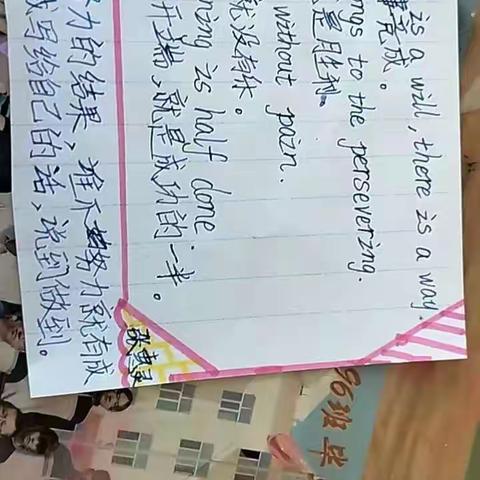 is a will, there is a way
事竟成。
ngs to the persevering.
是胜利。
without pain.
就没有休。
nning is half done
开端、就是成功的一半。
力的结果、难不努力就有成
写给自己的话、说到做到。
96班毕